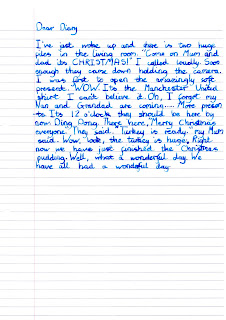 Dear Diary
I've just woke up and there is two huge
piles in the living room. "Come on Mum and
dad its CHRISTMAS!" I called loudly. Soon
enough they came down holding the camera.
I was first to open the amazingly soft
present. "WOW. It's the Manchester United
shirt I can't believe it. Oh, I forgot my
Nan and Grandad are coming.... More presen
ts. Its 12 o'clock they should be here by
now. Ding Dong. There here, "Merry Christmas
everyone." They said. Turkey is ready." my Mum
said. Wow, look, the turkey is huge. Right
now we have just finished the Christmas
pudding. Well, what a wonderful day. We
have all had a wonderful day